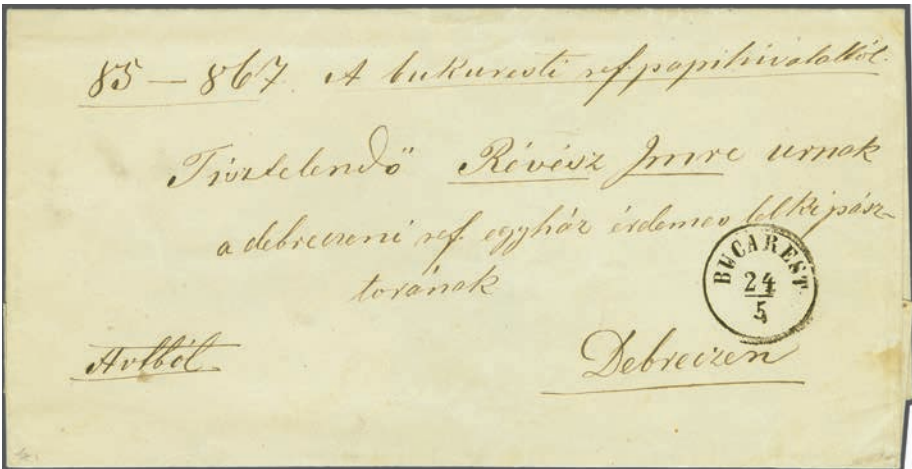 85 – 867. A bukuresti ref. papihivatalból.
Tisztelendő Révész Imre urnak
a debreczeni ref. egyház érdemes lelkipász-
torának
BUCAREST.
24
5
Debreczen